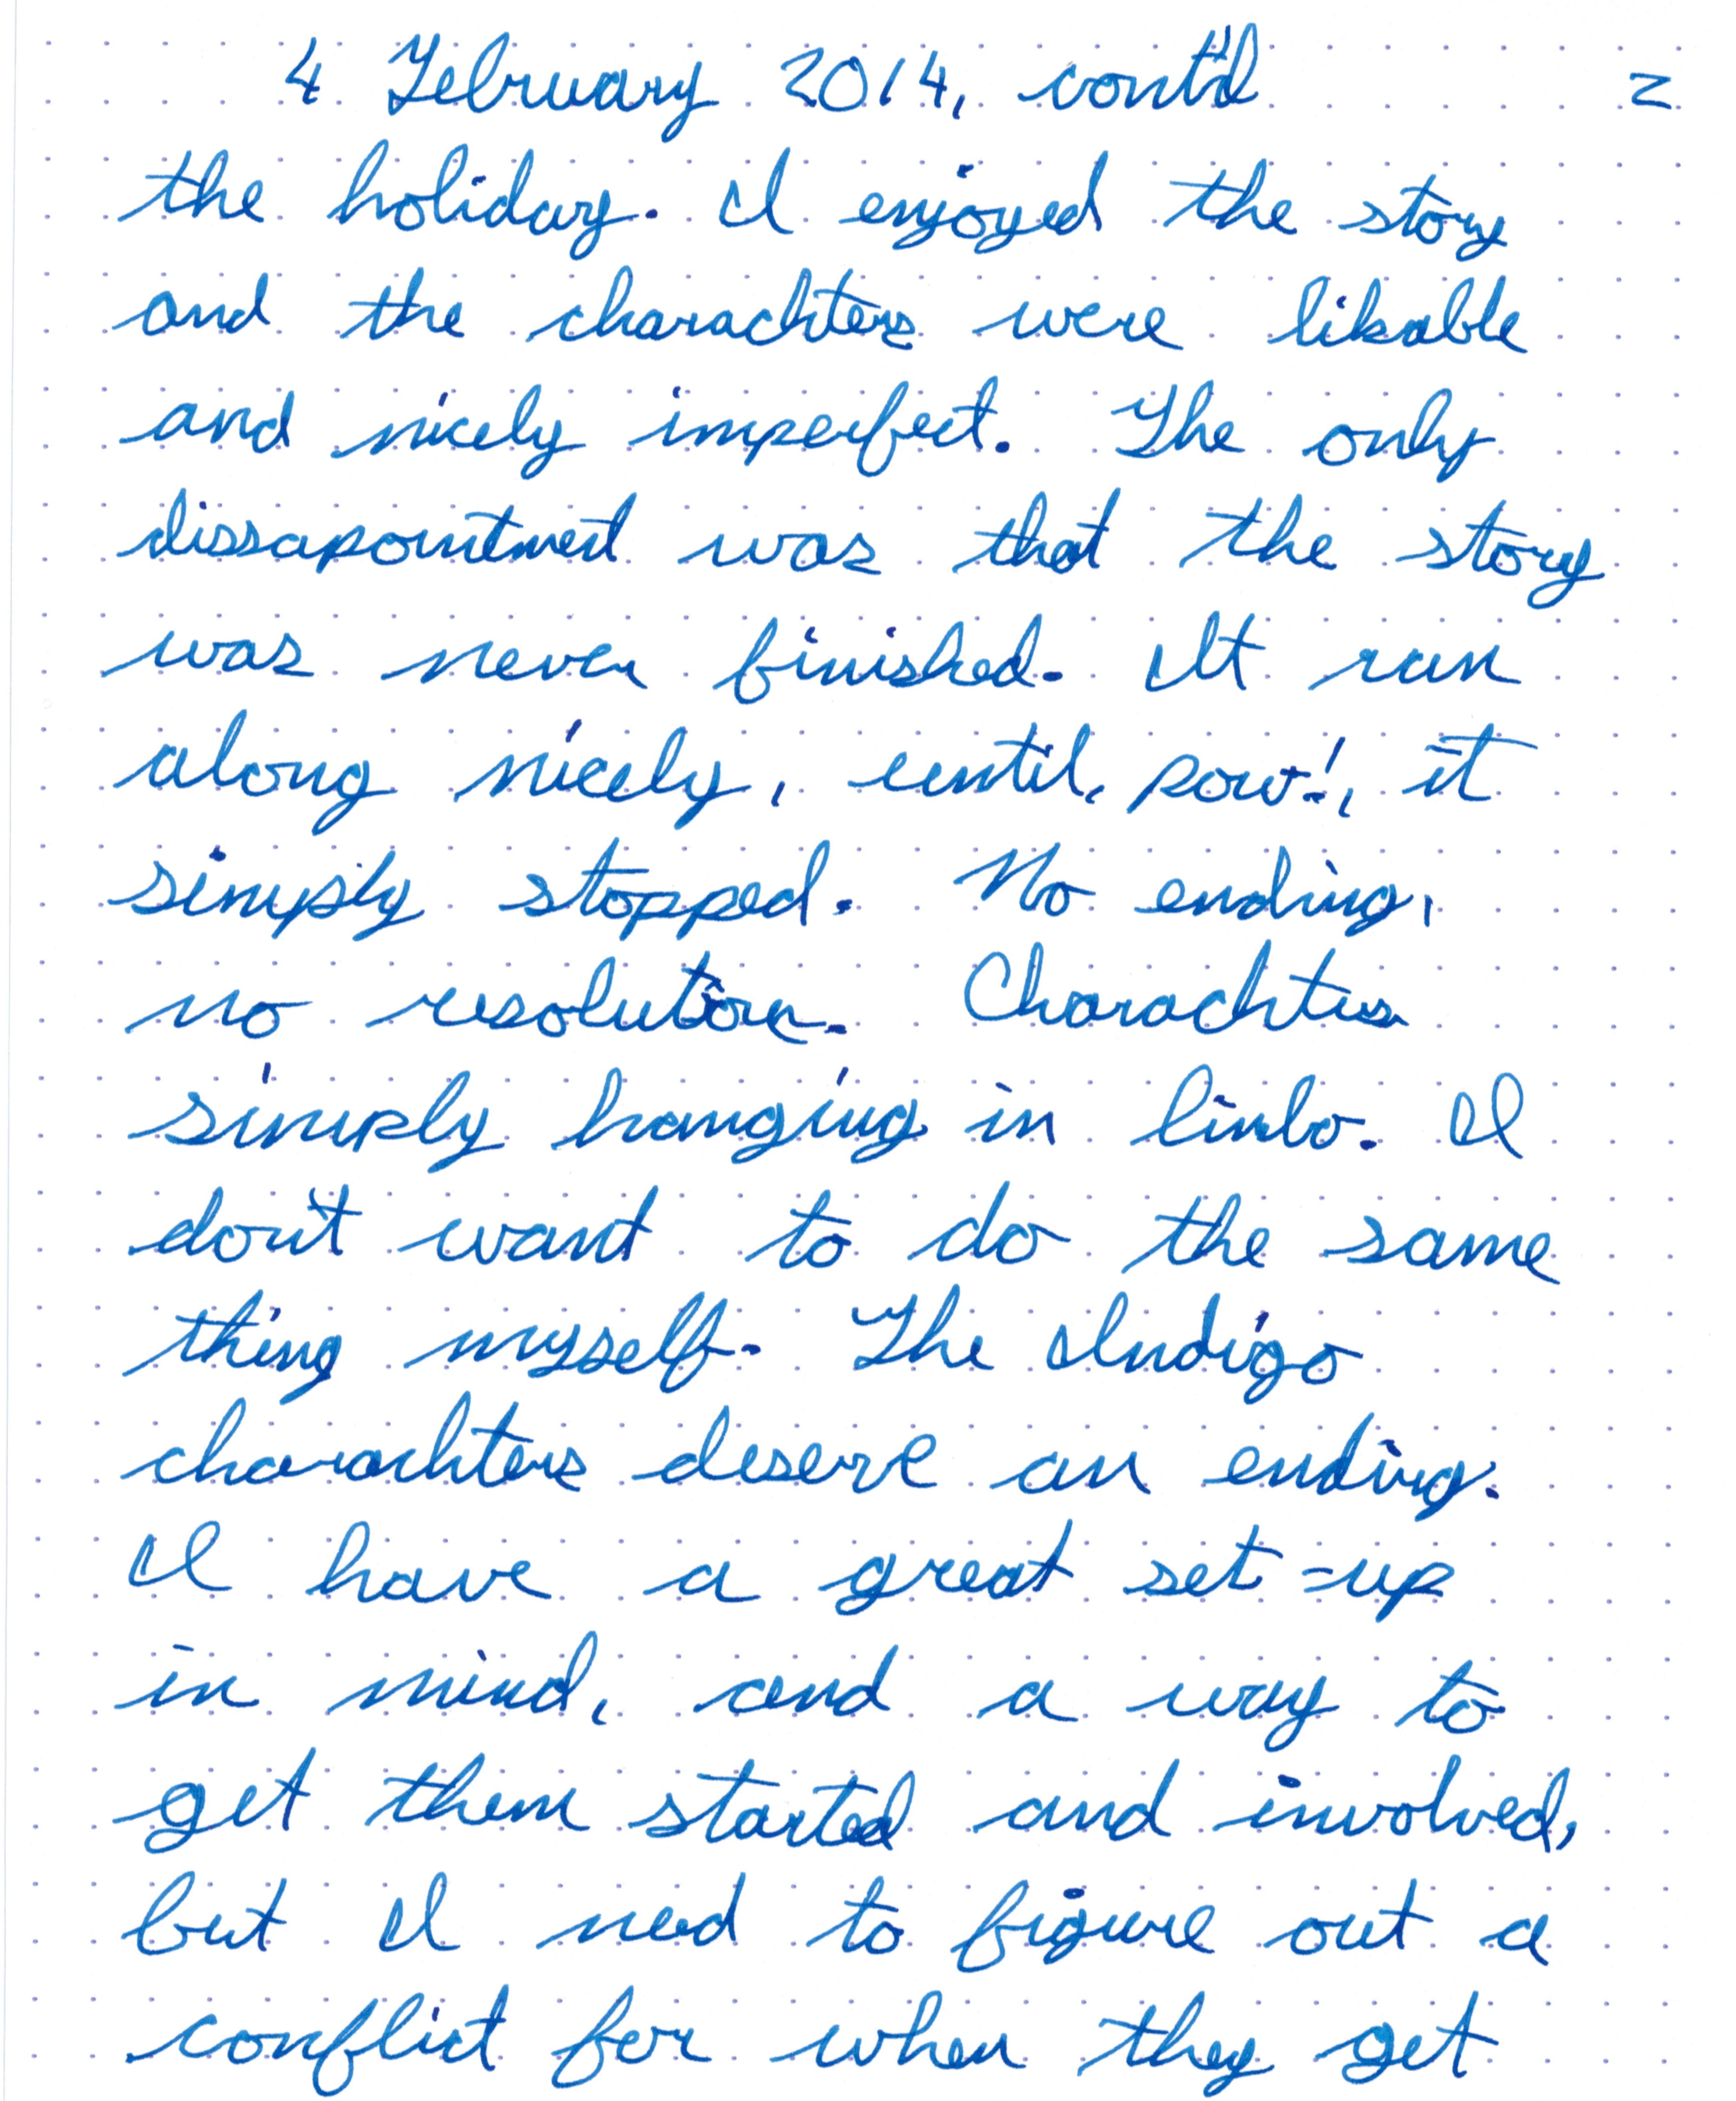 4 February 2014, cont'd 2
the holiday. I enjoyed the story
and the charachters were likable
and nicely imperfect. The only
dissapointment was that the story
was never finished. It ran
along nicely, until, pow!, it
simply stopped. No ending,
no resolution. Charachters
simply hanging in limbo. I
don't want to do the same
thing myself. The Indigo
charachters deserve an ending.
I have a great set-up
in mind, and a way to
get them started and involved,
but I need to figure out a
conflict for when they get